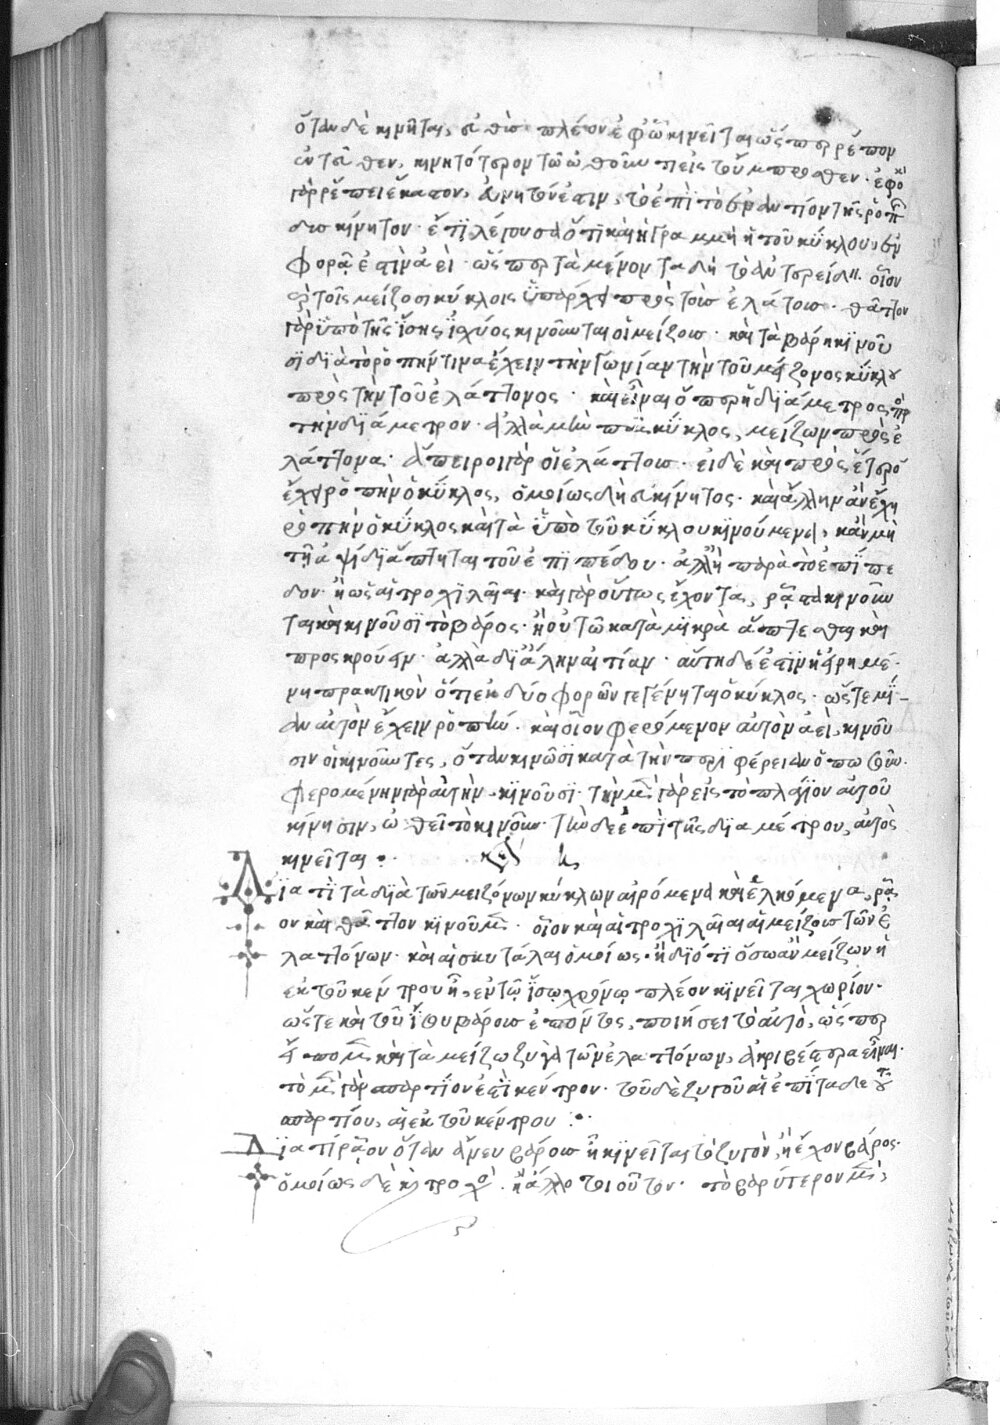 ὅταν δὲ κινῆται, εὐθὺς πλέον ἐφ' ᾧ κινεῖται ὥσπερ ῥέπον
ἐντεῦθεν, κινητότερον τῷ ὠθοῦντι εἰς τοὔμπροσθεν. ἐφ' ὃ
γὰρ ῥέπει ἕκαστον, εὐκίνητόν ἐστιν, τὸ ἐπὶ τὸ ἐναντίον τῆς ῥοπῆς
δυσκίνητον. ἔτι λέγουσιν ὅτι καὶ ἡ γραμμὴ ἡ τοῦ κύκλου ἐν
φορᾷ ἐστὶν ἀεὶ. ὥσπερ τὰ μένοντα διὰ τὸ ἀντερείδειν. οἷον
αὐτοῖς μείζοσι κύκλοις ὑπάρχει πρὸς τοὺς ἐλάττους. θᾶττον
γὰρ ὑπὸ τῆς ἴσης ἰσχύος κινοῦνται οἱ μείζους. καὶ τὰ βάρη κινοῦ
σι διὰ τὸ ῥοπήν τινα ἔχειν τὴν γωνίαν τὴν τοῦ μείζονος κύκλου
πρὸς τὴν τοῦ ἐλάττονος. καὶ εἶναι ὅπερ ἡ διάμετρος πρὸς
τὴν διάμετρον. ἀλλὰ μὴν πᾶς κύκλος, μείζων πρὸς ἐ
λάττονα. ἄπειροι γὰρ οἱ ἐλάττους. εἰ δὲ καὶ πρὸς ἕτερον
ἔχει ῥοπὴν ὁ κύκλος, ὁμοίως δὴ εὐκίνητος. καὶ ἄλλην ἂν ἔχοι
ῥοπὴν ὁ κύκλος καὶ τὰ ὑπὸ τοῦ κύκλου κινούμενα, κἂν μὴ
τῇ ἁψῖδι ἅπτηται τοῦ ἐπιπέδου. ἀλλ' ἢ παρὰ τὸ ἐπίπε
δον. ἢ ὡς αἱ τροχιλέαι. καὶ γὰρ οὕτως ἔχοντα, ῥᾷστα κινοῦν
ται καὶ κινοῦσι τὸ βάρος. ἢ οὐ τῷ κατὰ μικρὰ ἅπτεσθαι καὶ
προσκρούειν. ἀλλὰ δι' ἄλλην αἰτίαν. αὕτη δέ ἐστιν ἡ εἰρημέ-
νη πρότερον ὅτι ἐκ δύο φορῶν γεγένηται ὁ κύκλος. ὥστε μί-
αν αὐτὸν ἔχειν ῥοπὴν. καὶ οἷον φερόμενον αὐτὸν ἀεὶ κινοῦ
σιν οἱ κινοῦντες, ὅταν κινῶσι κατὰ τὴν περιφέρειαν ὁπωσοῦν.
φερομένην γὰρ αὐτὴν κινοῦσι. τὴν μὲν γὰρ εἰς τὸ πλάγιον αὐτοῦ
κίνησιν, ὠθεῖ τὸ κινοῦν. τὴν δὲ ἐπὶ τῆς διαμέτρου, αὐτὸς
κινεῖται :·
Δια τί τὰ διὰ τῶν μειζόνων κύκλων αἰρόμενα καὶ ἑλκόμενα, ῥᾷ
ον καὶ θᾶττον κινοῦμεν. οἷον καὶ αἱ τροχιλέαι αἱ μείζους τῶν ἐ
λαττόνων. καὶ αἱ σκυτάλαι ὁμοίως. ἢ διότι ὅσῳ ἂν μείζων ἡ
ἐκ τοῦ κέντρου ᾖ, ἐν τῷ ἴσῳ χρόνῳ πλέον κινεῖται χωρίον.
ὥστε καὶ τοῦ ἴσου βάρους ἐπόντος, ποιήσει τὸ αὐτὸ, ὥσπερ
εἴπομεν καὶ τὰ μείζω ζυγὰ τῶν ἐλαττόνων, ἀκριβέστερα εἶναι.
τὸ μὲν γὰρ σπαρτίον ἐστὶ κέντρον. τοῦ δὲ ζυγοῦ αἱ ἐπὶ τάδε τοῦ
σπαρτίου, αἱ ἐκ τοῦ κέντρου :·
Δια τί ῥᾷον ὅταν ἄνευ βάρους ᾖ κινεῖται τὸ ζυγὸν, ἢ ἔχον βάρος.
ὁμοίως δὲ καὶ τροχὸς. ἢ ἄλλο τοιοῦτον. τὸ βαρύτερον μὲν,